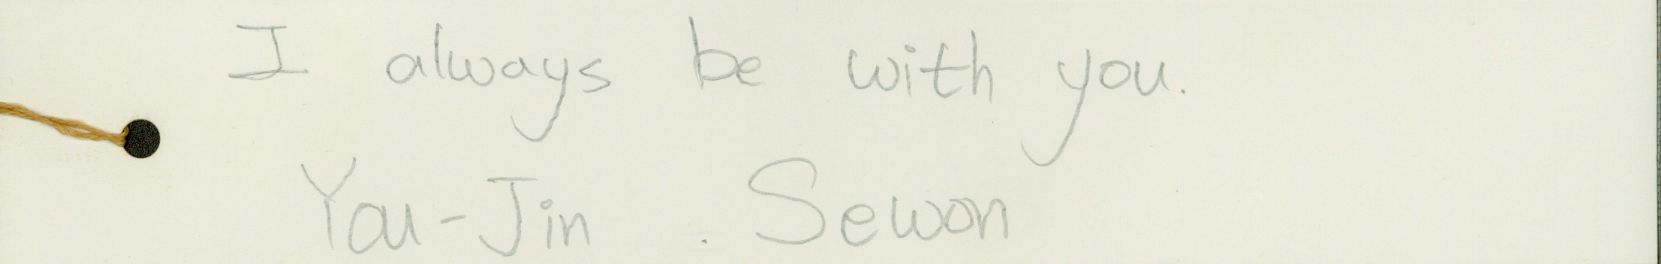 I always be with you.
You-Jin . Sewon